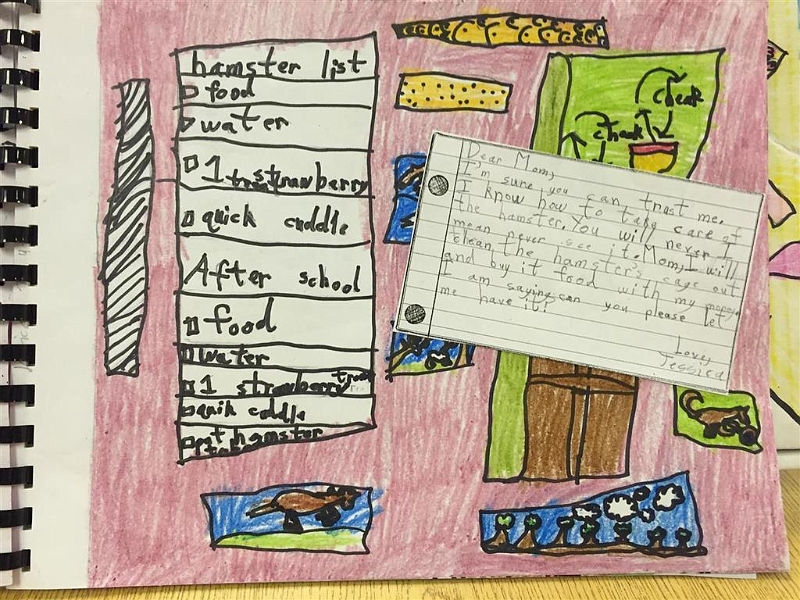 hamster list
food
water
1 strawberry
quick cuddle
After school
food
water
1 strawberry
quik cuddle
pet hamster
cheak
cheak
Dear Mom,
I'm sure you can trust me.
I know how to take care of
the hamster. You will never I
mean never see it. Mom, I will
clean the hamster's cage out
and buy it food with my money
I am saying can you please let
me have it!
Love,
Jessica